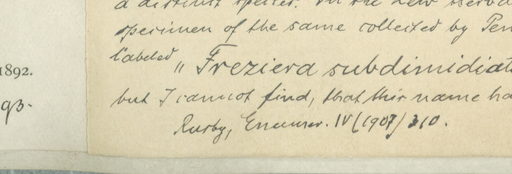 a distinct species. In the new
specimen of the same collected by Pen
labeled „Freziera subdimidiat
1892.
but I cannot find, that this name ha
93.
Rusby, Enumer. IV (1907) 310.